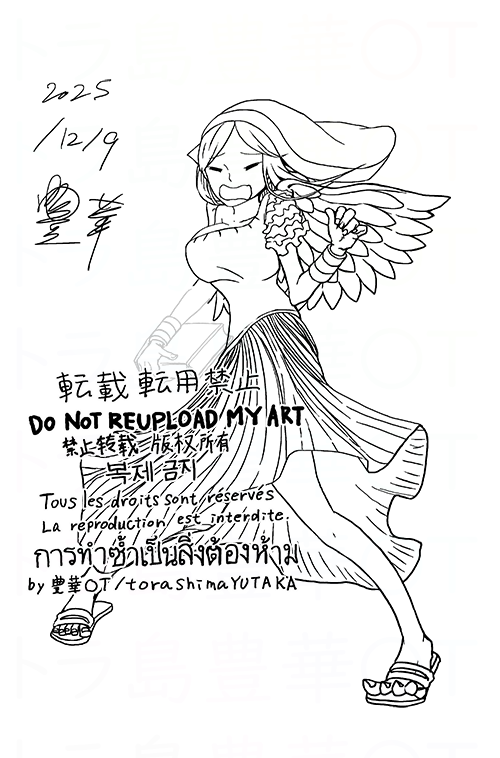 2025
/12/9
豊華
転載 転用 禁止
DO NOT REUPLOAD MY ART
禁止转载 版权所有
복제 금지
Tous les droits sont réservés
La reproduction est interdite.
การทำซ้ำเป็นสิ่งต้องห้าม
by 豊華○T/torashimaYUTAKA
トラ島豊華○T
トラ島豊華○T